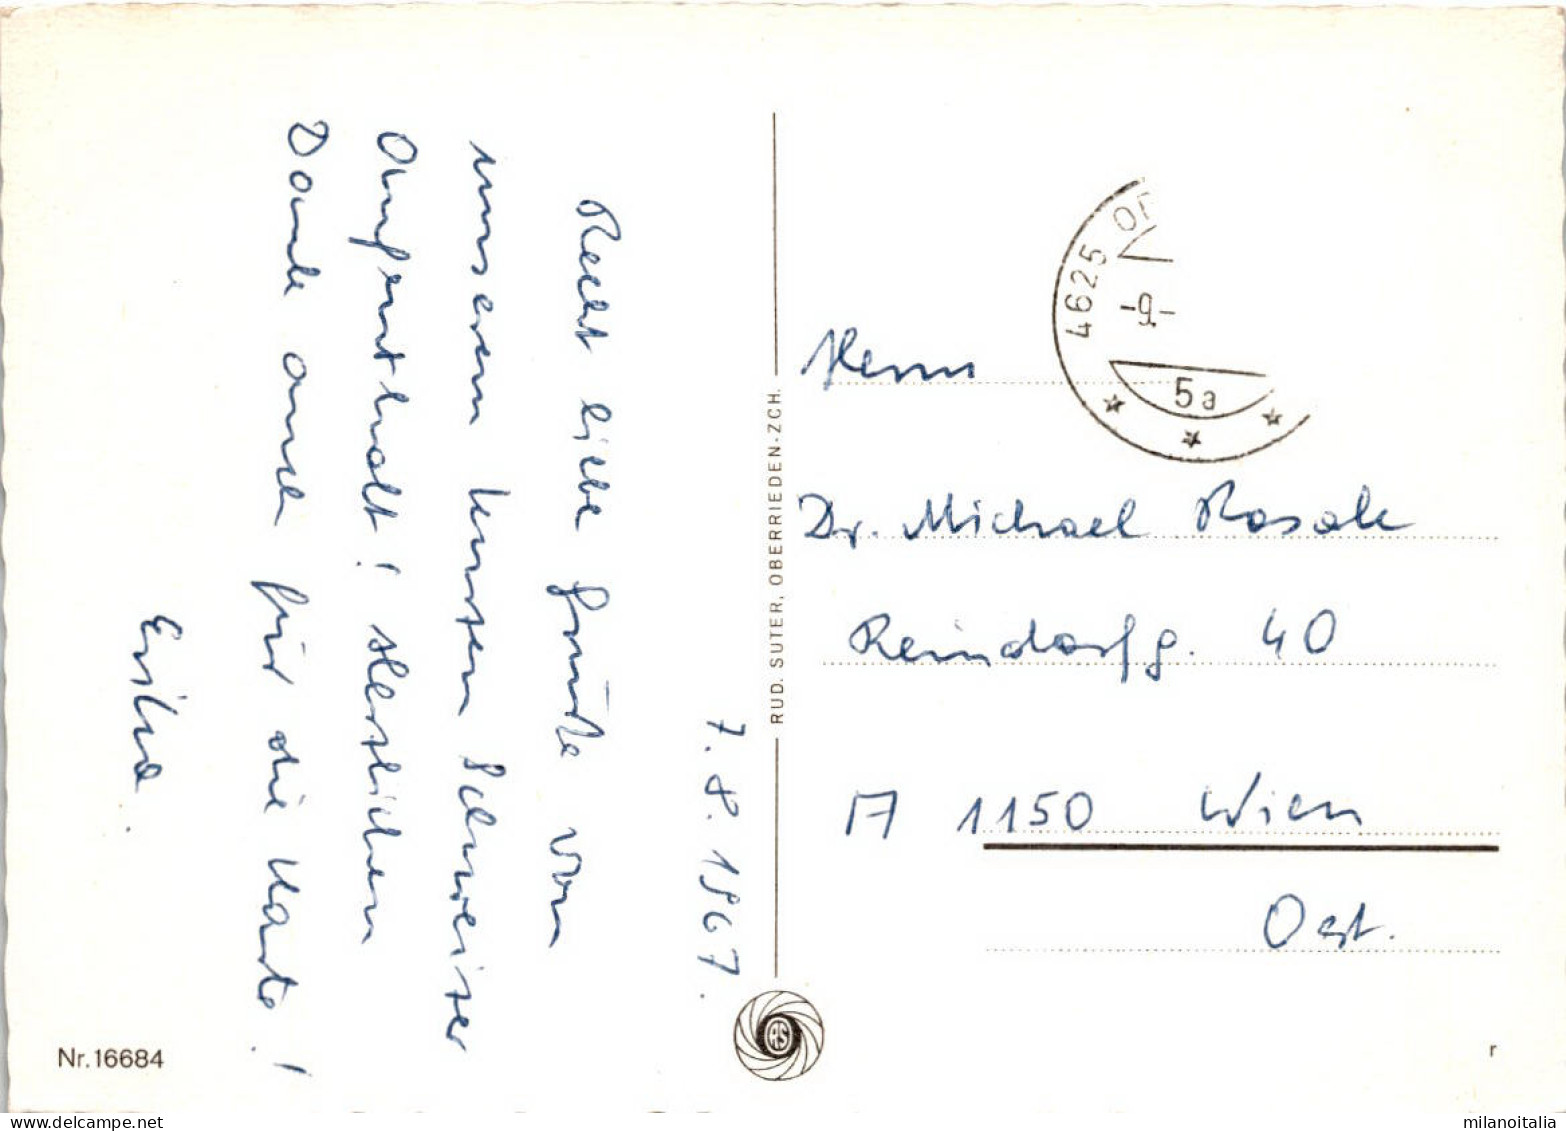 7. 8. 1967.
Recht liebe Grüße von
unserem kurzen Schweizer
Aufenthalt! Herzlichen
Dank auch für die Karte!
Erika.
RUD. SUTER, OBERRIEDEN-ZCH.
4625 O
-9.-
5a
Herrn
Dr. Michael Rosak
Reindorfg. 40
A 1150 Wien
Oest.
Nr. 16684
r
milanoitalia